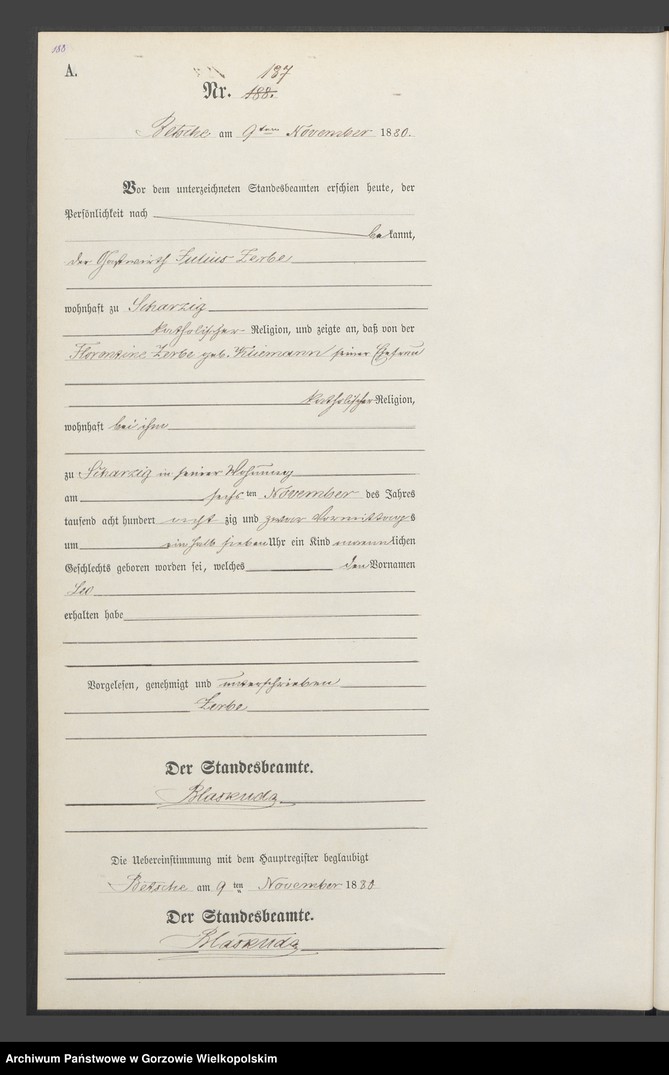 188
A.
Nr. 188. 187
Betsche am 9ten November 1880.
Vor dem unterzeichneten Standesbeamten erschien heute, der
Persönlichkeit nach
bekannt,
der Gastwirth Julius Zerbe
wohnhaft zu Scharzig
katholischer Religion, und zeigte an, daß von der
Florentine Zerbe geb. Kliemann seiner Ehefrau
katholischer Religion,
wohnhaft bei ihm
zu Scharzig in seiner Wohnung
am sechsten November des Jahres
tausend acht hundert achtzig und zwar Vormittags
um ein halb sieben Uhr ein Kind männlichen
Geschlechts geboren worden sei, welches den Vornamen
Leo
erhalten habe
Vorgelesen, genehmigt und unterschrieben
Zerbe
Der Standesbeamte.
Blaskuda
Die Uebereinstimmung mit dem Hauptregister beglaubigt
Betsche am 9ten November 1880
Der Standesbeamte.
Blaskuda
Archiwum Państwowe w Gorzowie Wielkopolskim